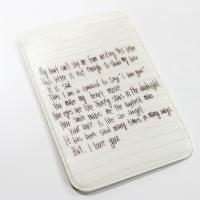 My heart can't stop me from writing this letter
This letter is not enough to show my love
It is sad
That I am a coward to say "I love you"
You make my heart move
Your eyes are like shining stars in the
Your smile makes me the happiest man
Your voice is like an angel
It has been said many times in many ways
But, I love you.